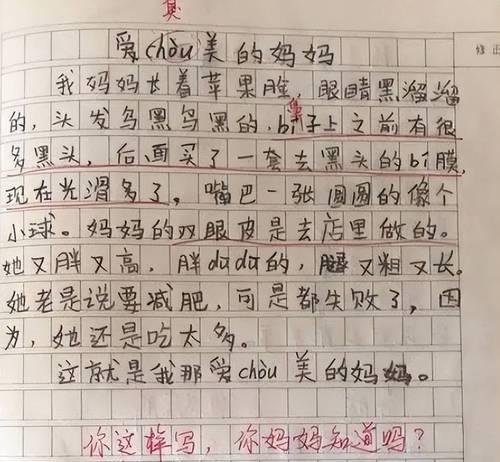 臭
修正
爱chòu美的妈妈
我妈妈长着苹果脸，眼睛黑溜溜
的，头发乌黑乌黑的，bí子上之前有很
鼻
多黑头，后面买了一套去黑头的bí膜，
现在光滑多了，嘴巴一张圆圆的像个
小球。妈妈的双眼皮是去店里做的。
她又胖又高，胖dūdū的，腿又粗又长。
她老是说要减肥，可是都失败了，因
为，她还是吃太多。
这就是我那爱chòu美的妈妈。
你这样写，你妈妈知道吗？